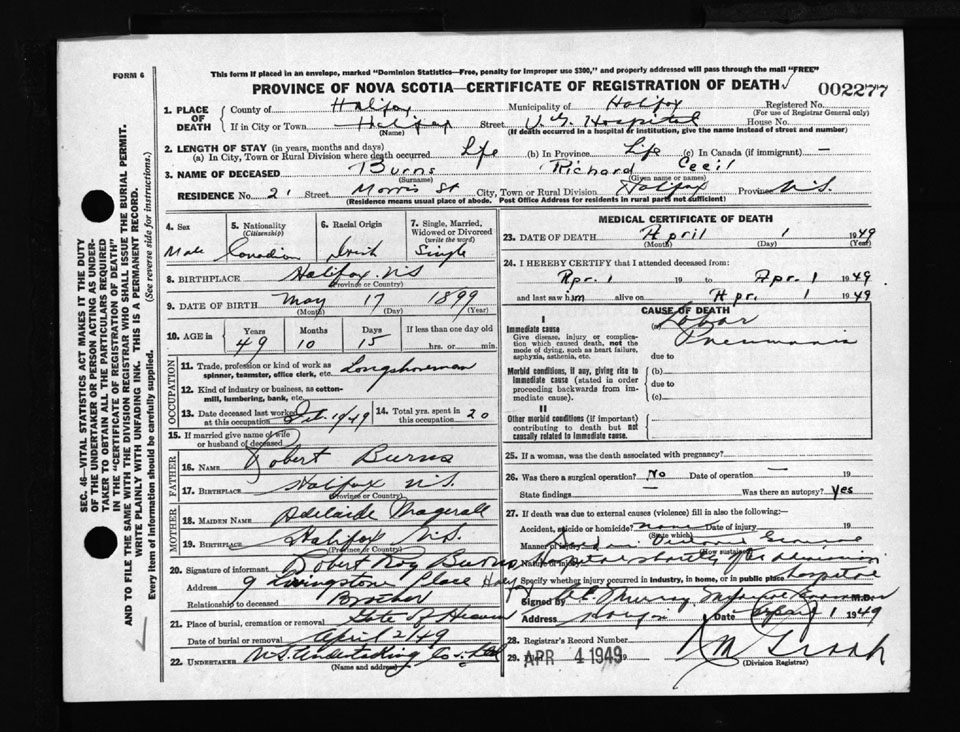 FORM 6
This form if placed in an envelope, marked "Dominion Statistics—Free, penalty for improper use $300," and properly addressed will pass through the mail "FREE"
PROVINCE OF NOVA SCOTIA—CERTIFICATE OF REGISTRATION OF DEATH
002277
1. PLACE OF DEATH
County of Halifax Municipality of Halifax Registered No.
(For use of Registrar General only)
If in City or Town Halifax Street V. G. Hospital House No.
(Name) (If death occurred in a hospital or institution, give the name instead of street and number)
2. LENGTH OF STAY (in years, months and days)
(a) In City, Town or Rural Division where death occurred Life (b) In Province Life (c) In Canada (if immigrant) —
3. NAME OF DECEASED Burns Richard Cecil
(Surname) (Given name or names)
RESIDENCE No. 21 Street Morris St City, Town or Rural Division Halifax Province N.S.
(Residence means usual place of abode. Post Office Address for residents in rural parts not sufficient)
4. Sex
Male
5. Nationality
(Citizenship)
Canadian
6. Racial Origin
Irish
7. Single, Married, Widowed or Divorced
(write the word)
Single
8. BIRTHPLACE Halifax N.S
(Province or Country)
9. DATE OF BIRTH May 17 1899
(Month) (Day) (Year)
10. AGE in Years Months Days If less than one day old
49 10 15 hrs. or min.
OCCUPATION
11. Trade, profession or kind of work as spinner, teamster, office clerk, etc. Longshoreman
12. Kind of industry or business, as cotton-mill, lumbering, bank, etc.
13. Date deceased last worked at this occupation Feb. 1949
14. Total yrs. spent in this occupation 20
15. If married give name of wife or husband of deceased
FATHER
16. NAME Robert Burns
17. BIRTHPLACE Halifax N.S.
(Province or Country)
MOTHER
18. MAIDEN NAME Adelaide
19. BIRTHPLACE Halifax N.S.
(Province or Country)
20. Signature of informant Robert Roy Burns
Address 9 Livingstone Place Halifax
Relationship to deceased Brother
21. Place of burial, cremation or removal Gate of Heaven
Date of burial or removal April 2/49
22. UNDERTAKER N.S. Undertaking Co. Ltd
(Name and address)
MEDICAL CERTIFICATE OF DEATH
23. DATE OF DEATH April 1 1949
(Month) (Day) (Year)
24. I HEREBY CERTIFY that I attended deceased from:
Apr. 1 19 to Apr. 1 1949
and last saw him alive on Apr. 1 1949
CAUSE OF DEATH
I
Immediate cause
Give disease, injury or complication which caused death, not the mode of dying, such as heart failure, asphyxia, asthenia, etc.
(a) Lobar
Pneumonia
due to
Morbid conditions, if any, giving rise to immediate cause (stated in order proceeding backwards from immediate cause).
(b)
due to
(c)
II
Other morbid conditions (if important) contributing to death but not causally related to immediate cause.
25. If a woman, was the death associated with pregnancy?
26. Was there a surgical operation? No Date of operation — 19
State findings — Was there an autopsy? Yes
27. If death was due to external causes (violence) fill in also the following:—
Accident, suicide or homicide? none Date of injury 19
(State which)
Manner of injury Died in Victoria General
(How sustained)
Nature of injury Hospital shortly after admission
Specify whether injury occurred in industry, in home, or in public place hospital
Signed by Murray Medical Examiner M.D.
Address Halifax Date April 1 1949
28. Registrar's Record Number
29. APR 4 1949 19
(Division Registrar)
SEC. 46—VITAL STATISTICS ACT MAKES IT THE DUTY
OF THE UNDERTAKER OR PERSON ACTING AS UNDER-
TAKER TO OBTAIN ALL THE PARTICULARS REQUIRED
IN THE "CERTIFICATE OF REGISTRATION OF DEATH"
AND TO FILE THE SAME WITH THE DIVISION REGISTRAR WHO SHALL ISSUE THE BURIAL PERMIT.
WRITE PLAINLY WITH UNFADING INK. THIS IS A PERMANENT RECORD.
Every item of information should be carefully supplied. (See reverse side for instructions.)